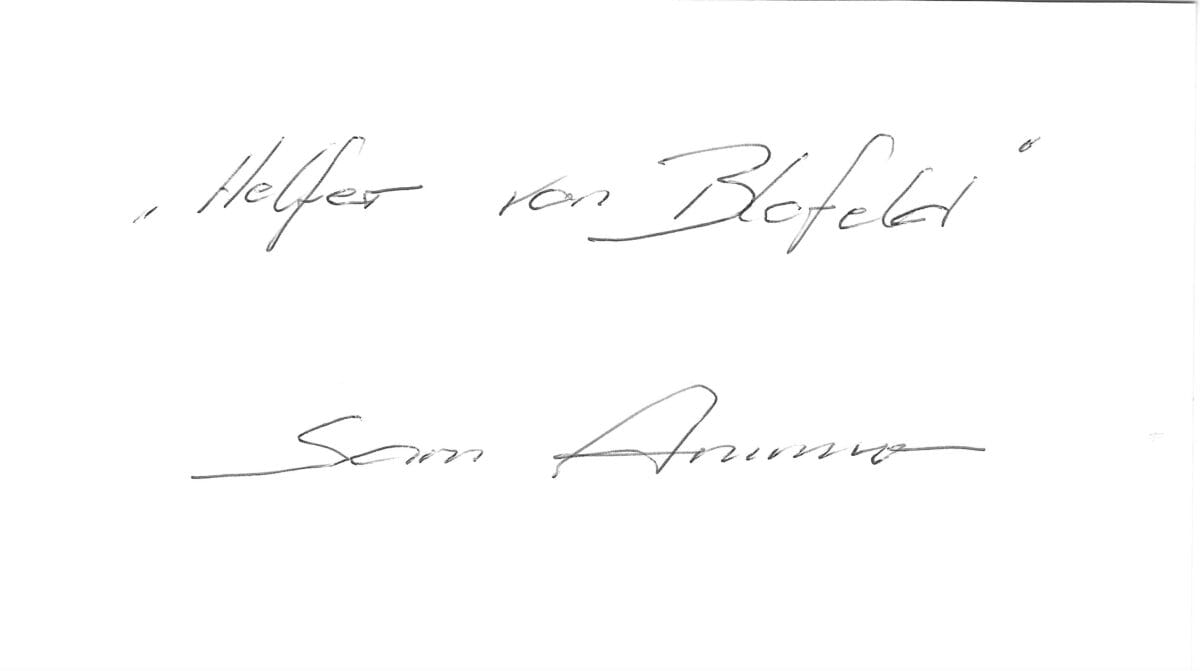 „Helfer von Blofeld“
Sam